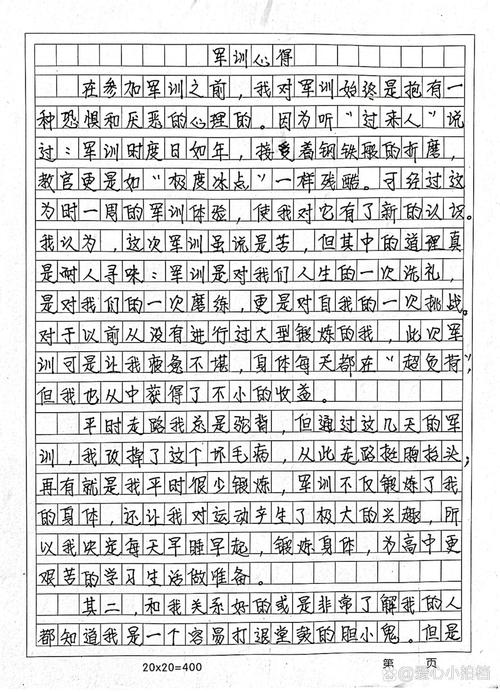 军训心得
在参加军训之前，我对军训始终是抱有一
种恐惧和厌恶的心理的。因为听“过来人”说
过：军训时度日如年，接受着钢铁般的折磨，
教官更是如“极度冰点”一样残酷。可经过这
为时一周的军训体验，使我对它有了新的认识。
我认为，这次军训虽说是苦，但其中的道理真
是耐人寻味：军训是对我们人生的一次洗礼，
是对我们的一次磨练，更是对自我的一次挑战。
对于以前从没有进行过大型锻炼的我，此次军
训可是让我疲惫不堪，身体每天都在“超负荷”，
但我也从中获得了不小的收益。
平时走路我总是弱背，但通过这几天的军
训，我改掉了这个坏毛病，从此走路挺胸抬头；
再有就是我平时很少锻炼，军训不仅锻炼了我
的身体，还让我对运动产生了极大的兴趣，所
以我决定每天早睡早起，锻炼身体，为高中更
艰苦的学习生活做准备。
其二，和我关系好的或是非常了解我的人
都知道我是一个容易打退堂鼓的胆小鬼。但是
20×20=400
第 页
爱心小档档